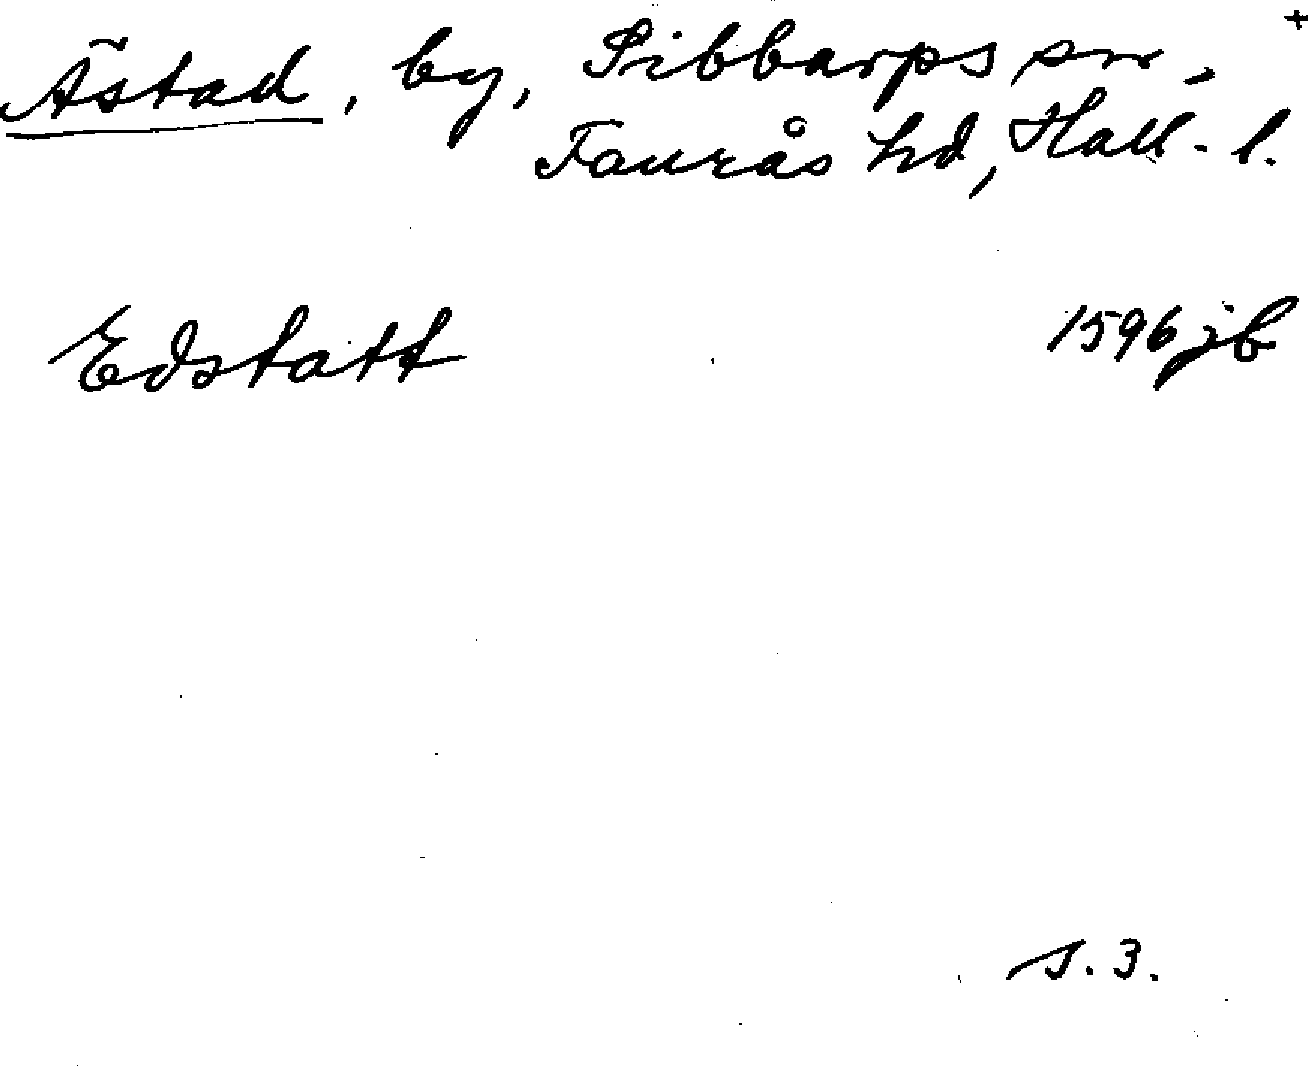 Ästad, by, Sibbarps sn, +
Faurås hd, Hall. l.
Edstatt 1596 jb
s. 3.